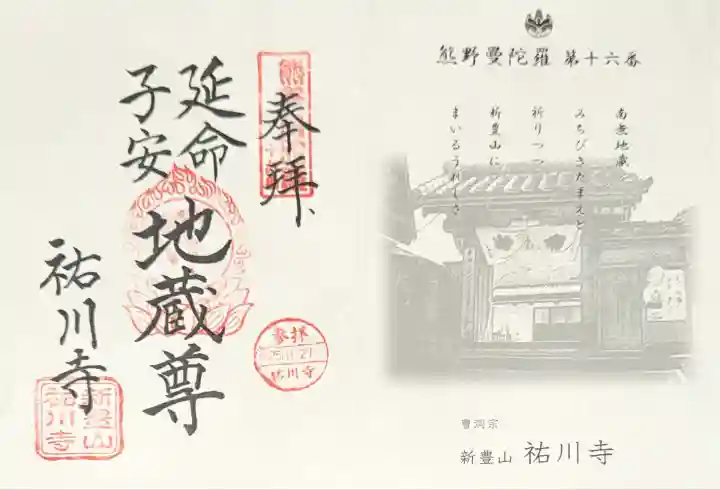 熊野曼陀羅 第十六番
南無地蔵
みちびきたまえと
祈りつつ
新豊山に
まいるうれしさ
曹洞宗
新豊山 祐川寺
奉拝
延命
子安
地蔵尊
祐川寺
参拝
祐川寺
新豊山
祐川寺